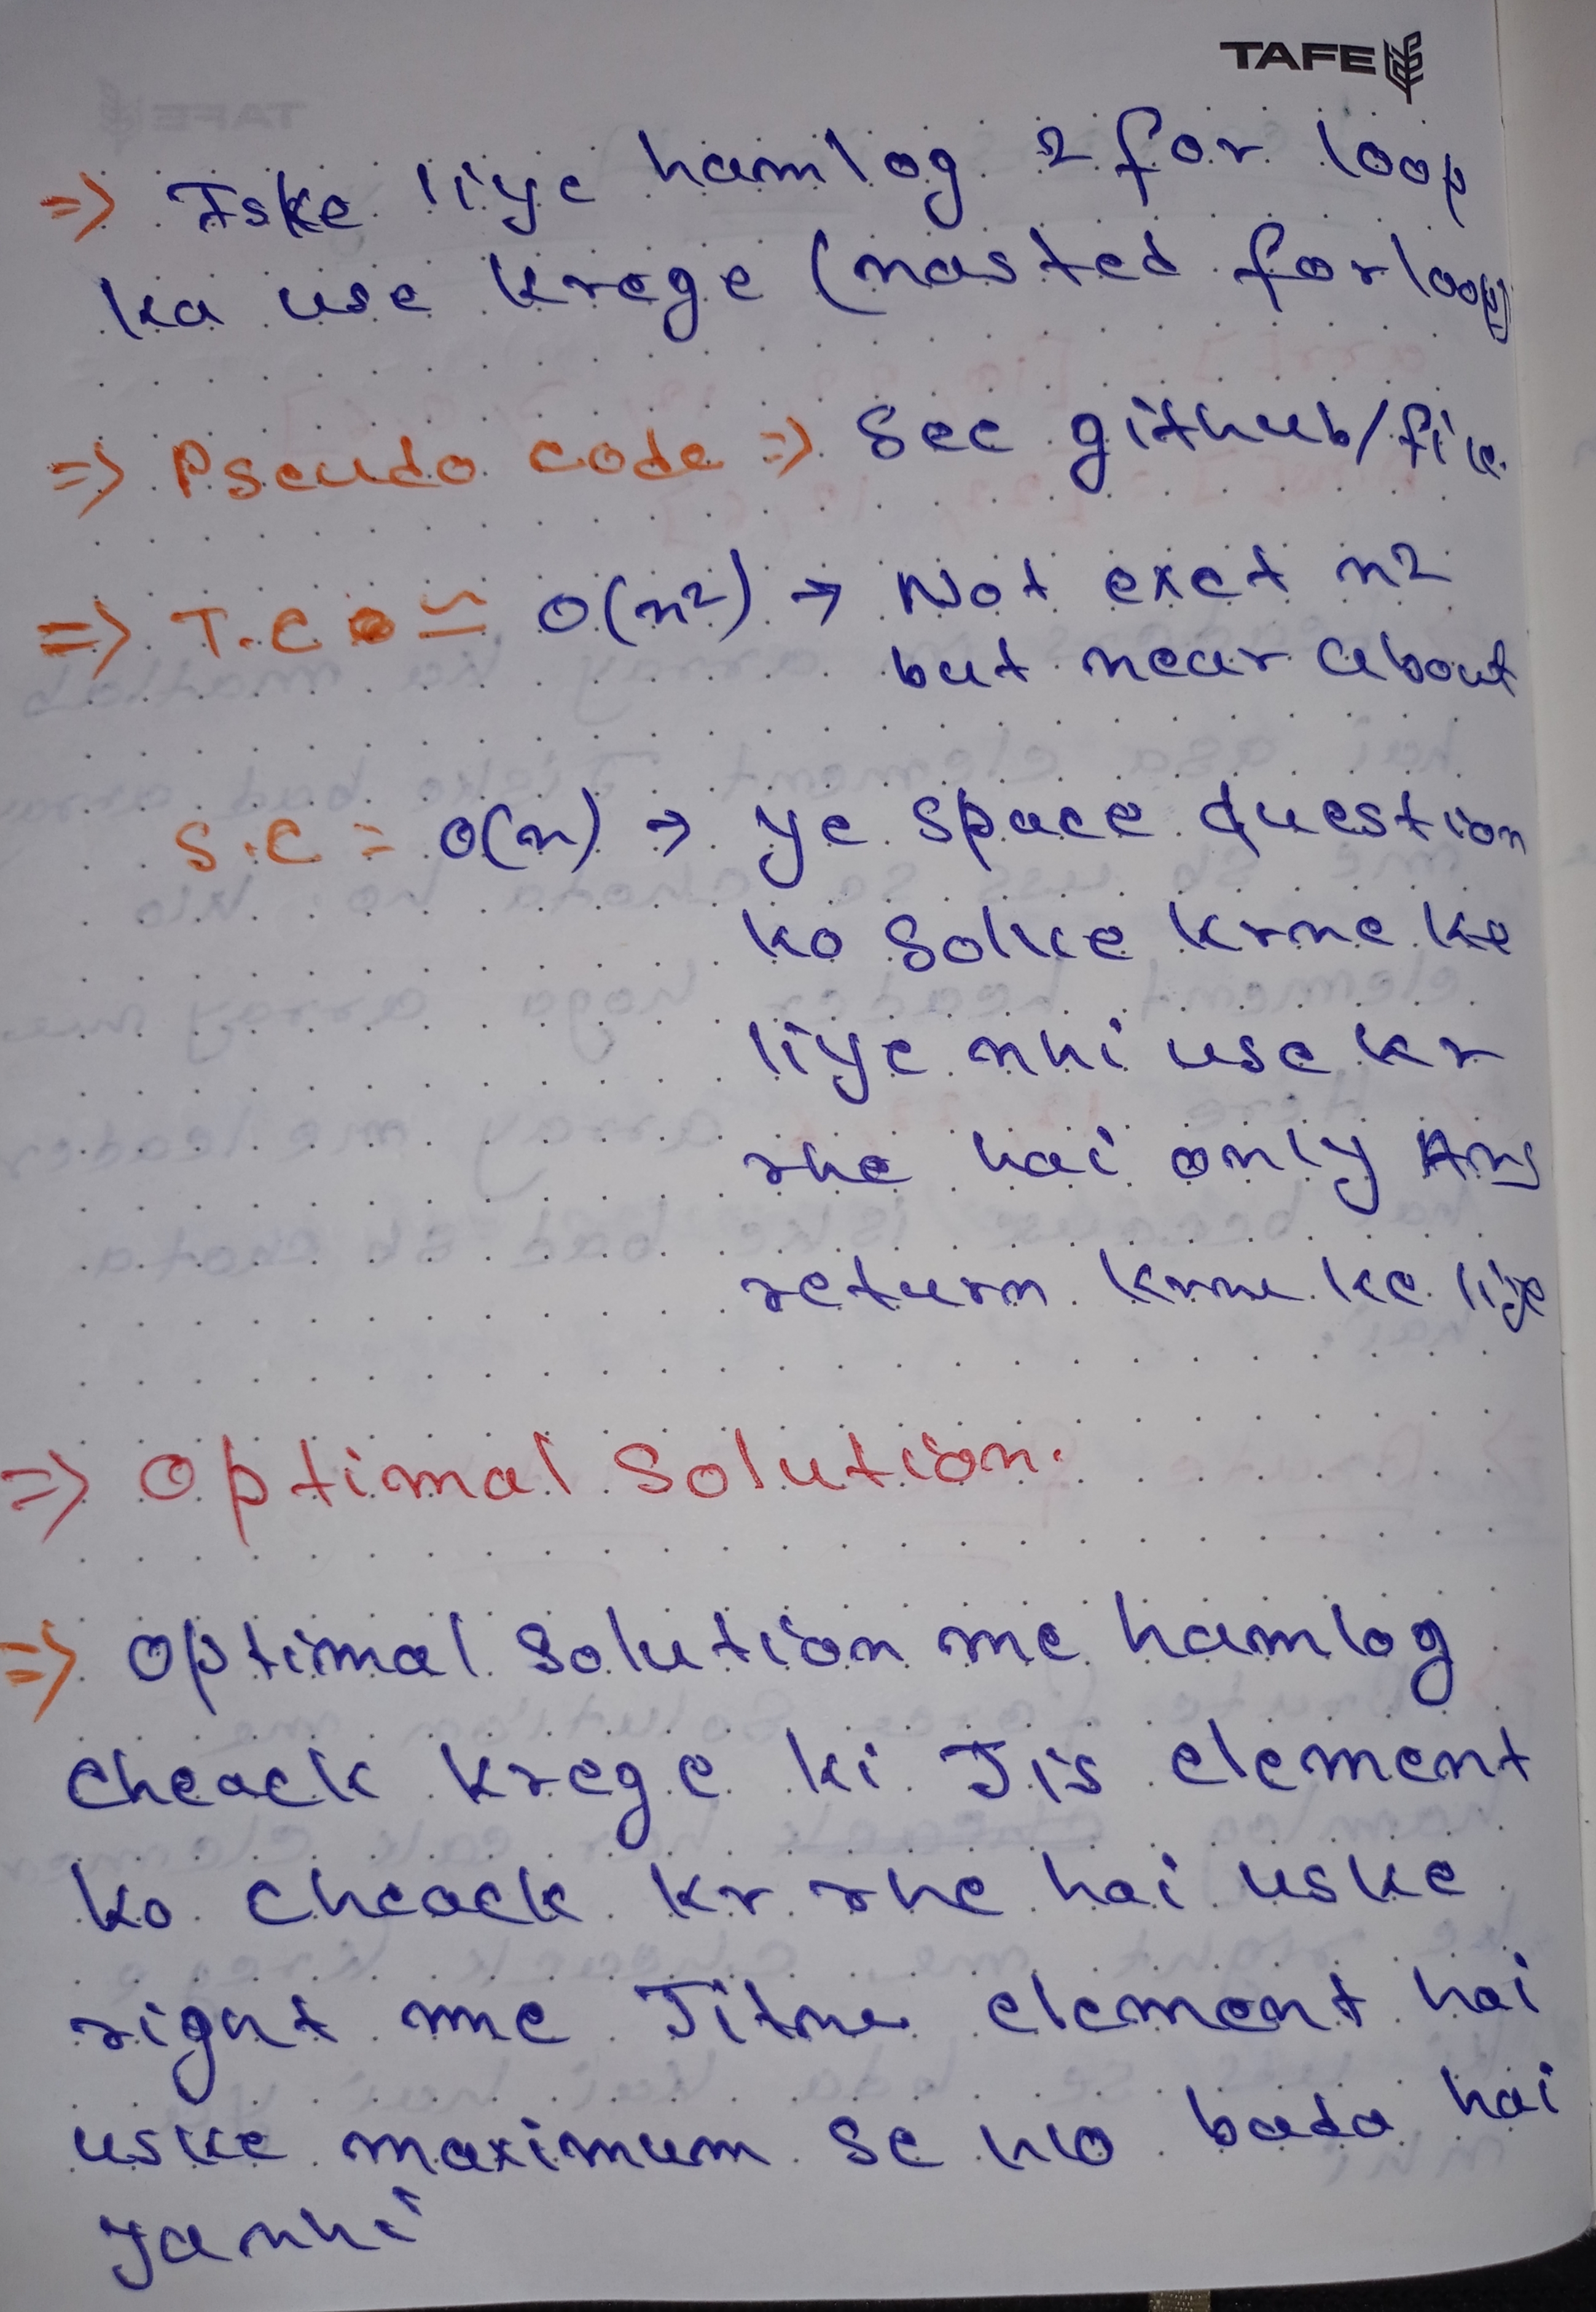 TAFE
=> Iske liye hamlog 2 for loop
ka use krege (nasted for loop)
=> Pseudo code => See github/file.
=> T.C ≃ O(n²) → Not exct n2
but near about
S.C = O(n) → ye space question
ko solke krne ke
liye nhi use kr
rhe hai only Ans
return krne ke liye
=> Optimal Solution.
=> Optimal solution me hamlog
cheack krege ki Jis element
ko cheack kr rhe hai uske
right me Jitne element hai
uske maximum se wo bada hai
ya nhi